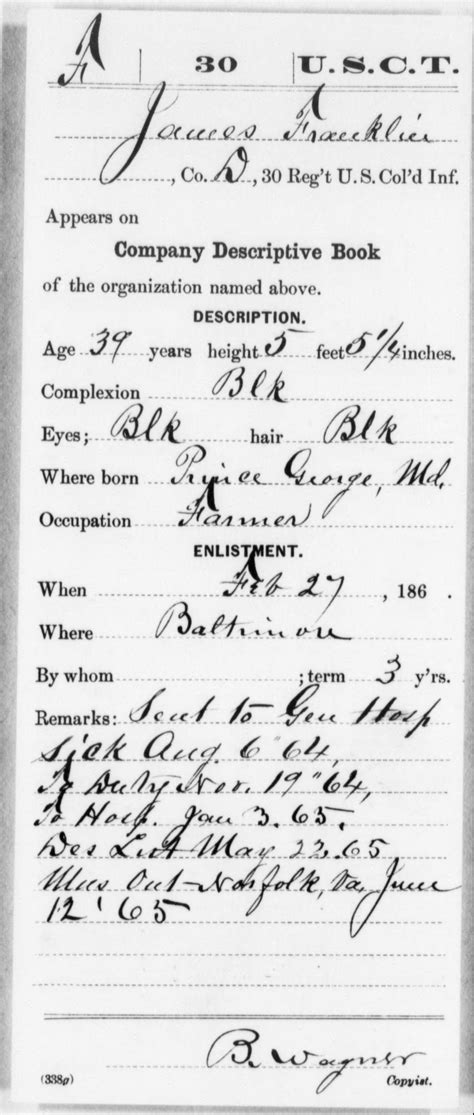 F | 30 | U.S.C.T.
James Franklin
, Co. D, 30 Reg't U.S. Col'd Inf.
Appears on
Company Descriptive Book
of the organization named above.
DESCRIPTION.
Age 39 years height 5 feet 5 1/4 inches.
Complexion Blk
Eyes; Blk hair Blk
Where born Prince George, Md.
Occupation Farmer
ENLISTMENT.
When Feb 27, 186 .
Where Baltimore
By whom ; term 3 y'rs.
Remarks: Sent to Gen Hosp
Sick Aug. 6" 64,
To Duty Nov. 19" 64,
To Hosp. Jan 3. 65.
Des List May 22. 65
Mus Out - Norfolk, Va, June
12' 65
B. Wagner
(338g) Copyist.